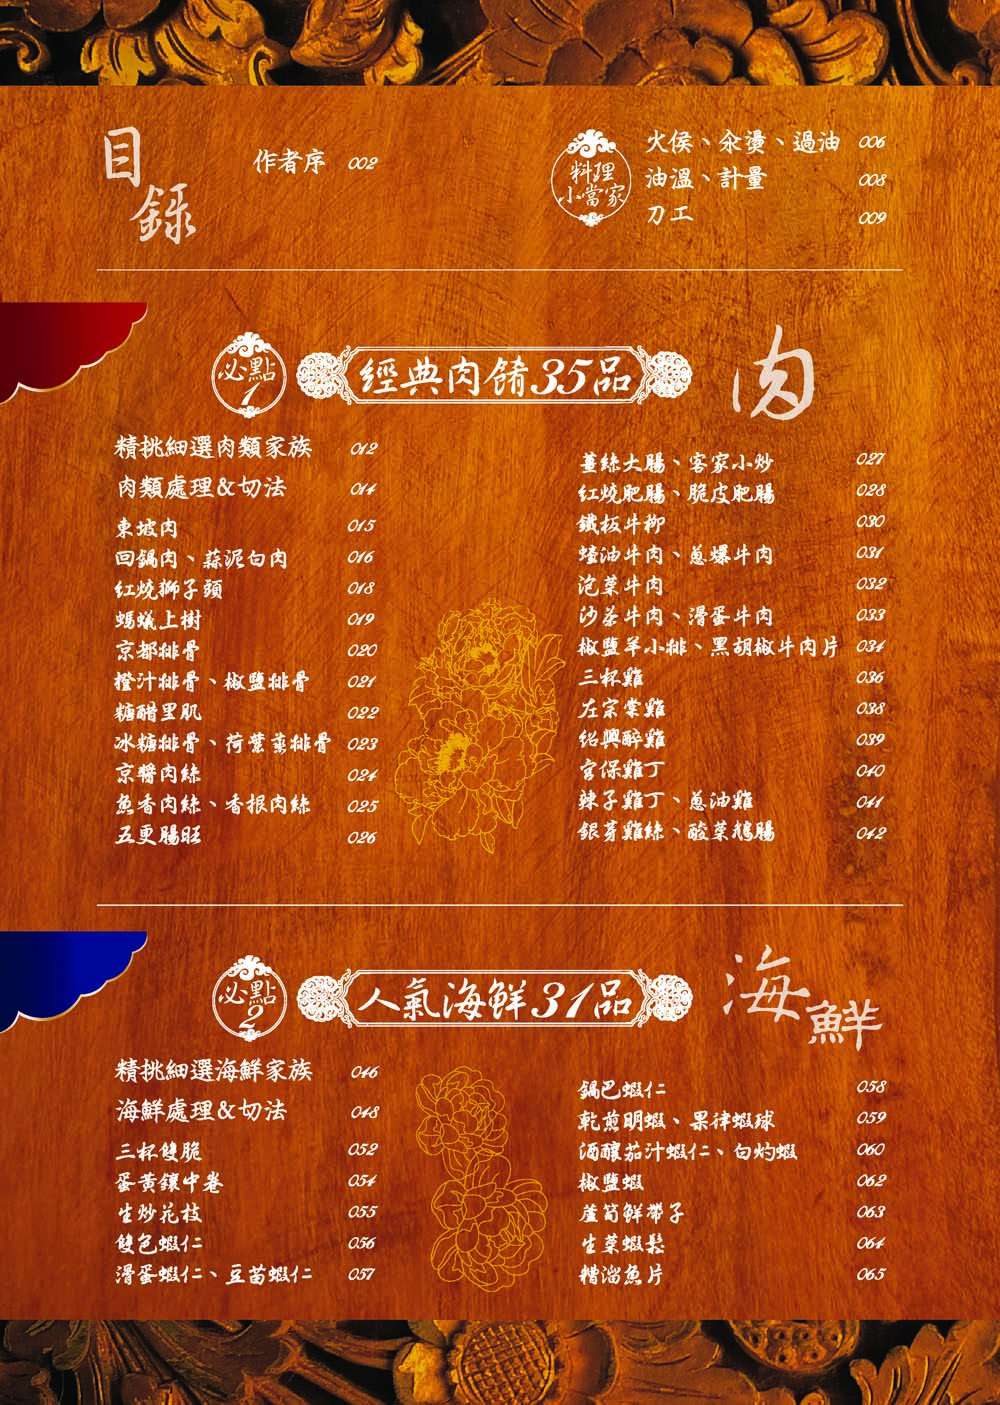 目錄
作者序 002
料理小當家
火侯、汆燙、過油 006
油溫、計量 008
刀工 009
必點1
經典肉餚35品
肉
精挑細選肉類家族 012
肉類處理&切法 014
東坡肉 015
回鍋肉、蒜泥白肉 016
紅燒獅子頭 018
螞蟻上樹 019
京都排骨 020
橙汁排骨、椒鹽排骨 021
糖醋里肌 022
冰糖排骨、荷葉蒸排骨 023
京醬肉絲 024
魚香肉絲、香根肉絲 025
五更腸旺 026
薑絲大腸、客家小炒 027
紅燒肥腸、脆皮肥腸 028
鐵板牛柳 030
蠔油牛肉、蔥爆牛肉 031
泡菜牛肉 032
沙茶牛肉、滑蛋牛肉 033
椒鹽羊小排、黑胡椒牛肉片 034
三杯雞 036
左宗棠雞 038
紹興醉雞 039
宮保雞丁 040
辣子雞丁、蔥油雞 041
銀芽雞絲、酸菜鵝腸 042
必點2
人氣海鮮31品
海鮮
精挑細選海鮮家族 046
海鮮處理&切法 048
三杯雙脆 052
蛋黃鑲中卷 054
生炒花枝 055
雙色蝦仁 056
滑蛋蝦仁、豆苗蝦仁 057
鍋巴蝦仁 058
乾煎明蝦、果律蝦球 059
酒釀茄汁蝦仁、白灼蝦 060
椒鹽蝦 062
蘆筍鮮帶子 063
生菜蝦鬆 064
糟溜魚片 065